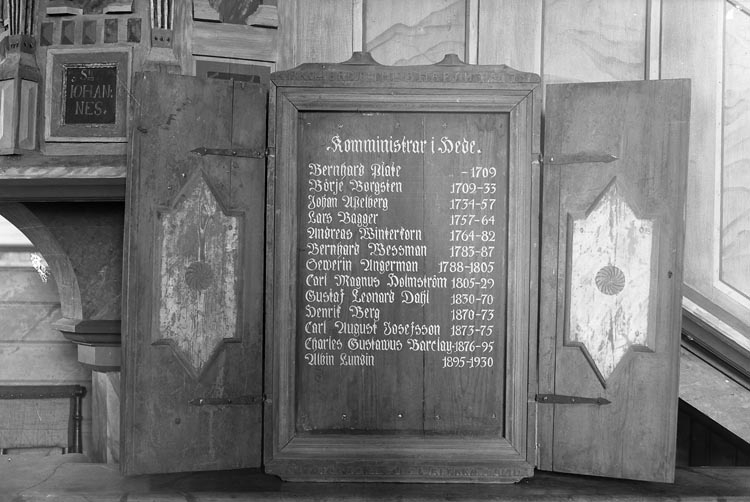 S:
IOHAN:
NES.
Komministrar i Hede.
Bernhard Plate -1709
Börje Borgsten 1709-33
Johan Aßelberg 1734-57
Lars Bagger 1757-64
Andreas Winterkorn 1764-82
Bernhard Wessman 1783-87
Sewerin Angerman 1788-1805
Carl Magnus Holmström 1805-29
Gustaf Leonard Dahl 1830-70
Henrik Berg 1870-73
Carl August Josefsson 1873-75
Charles Gustawus Barclay-1876-95
Albin Lundin 1895-1930